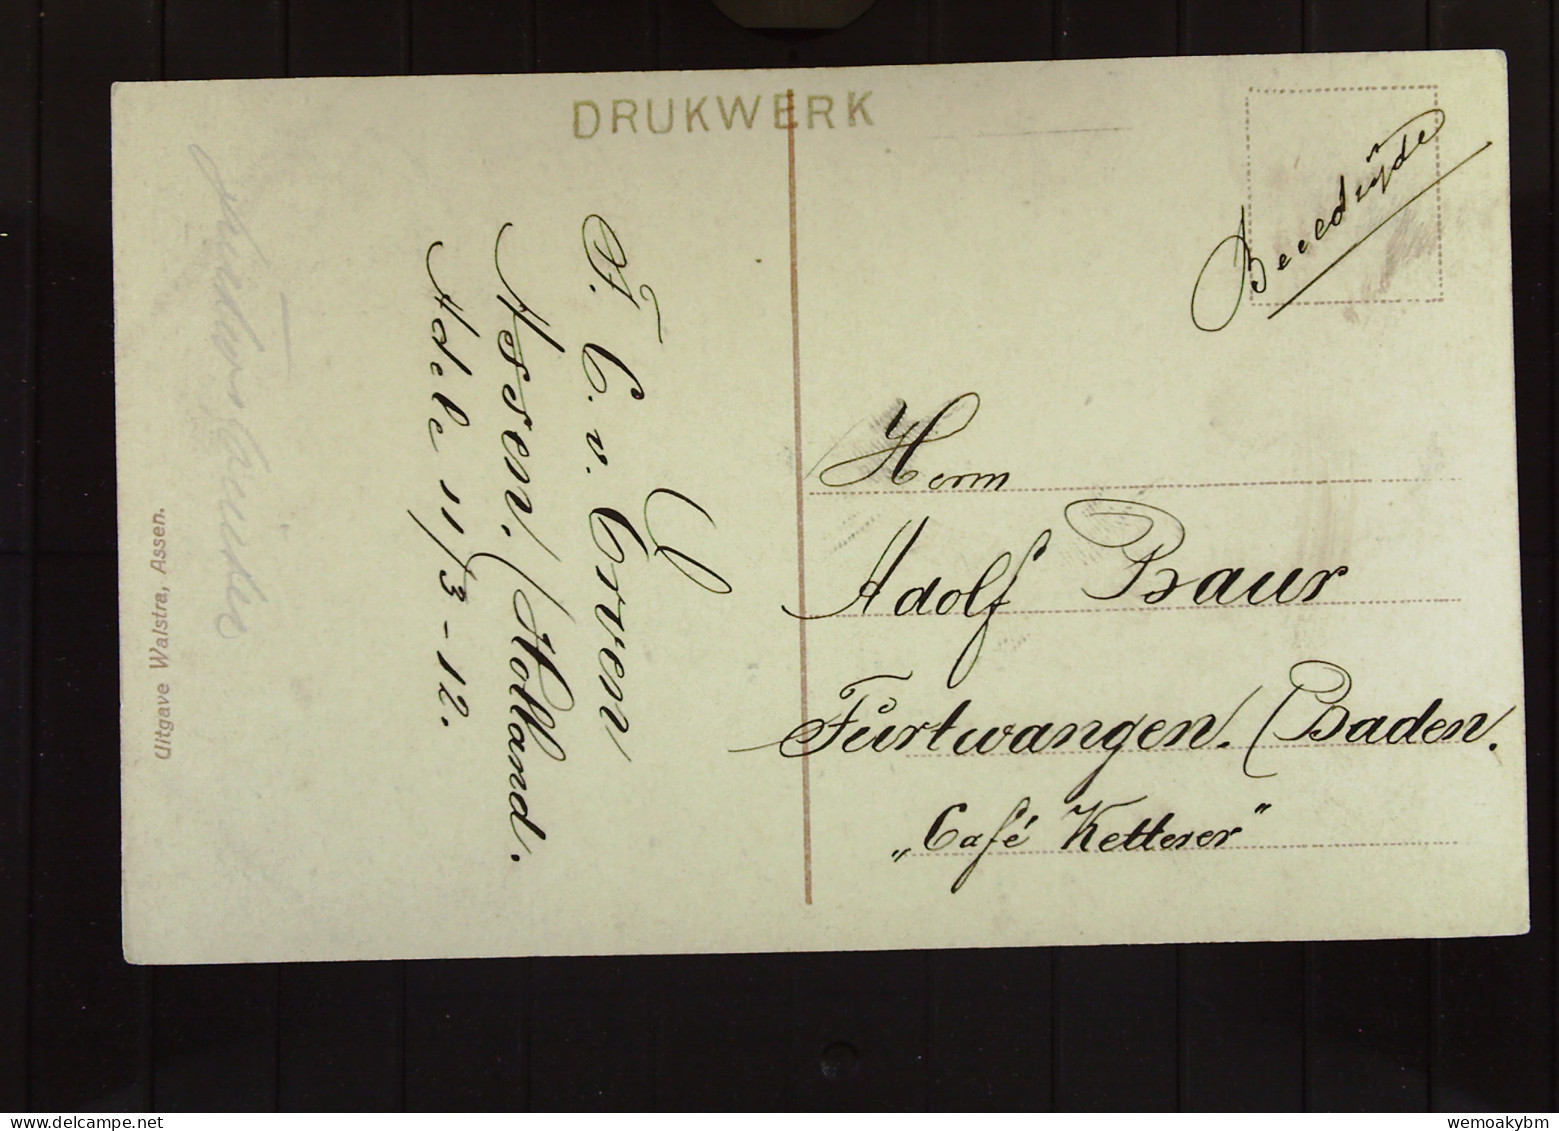 DRUKWERK
F. C. v. Erven
Assen. (Holland.
Adele 11/3-12.
Uitgave Walstra, Assen.
Herrn
Adolf Baur
Furtwangen. (Baden.
„Café Ketterer"
wemoakybm